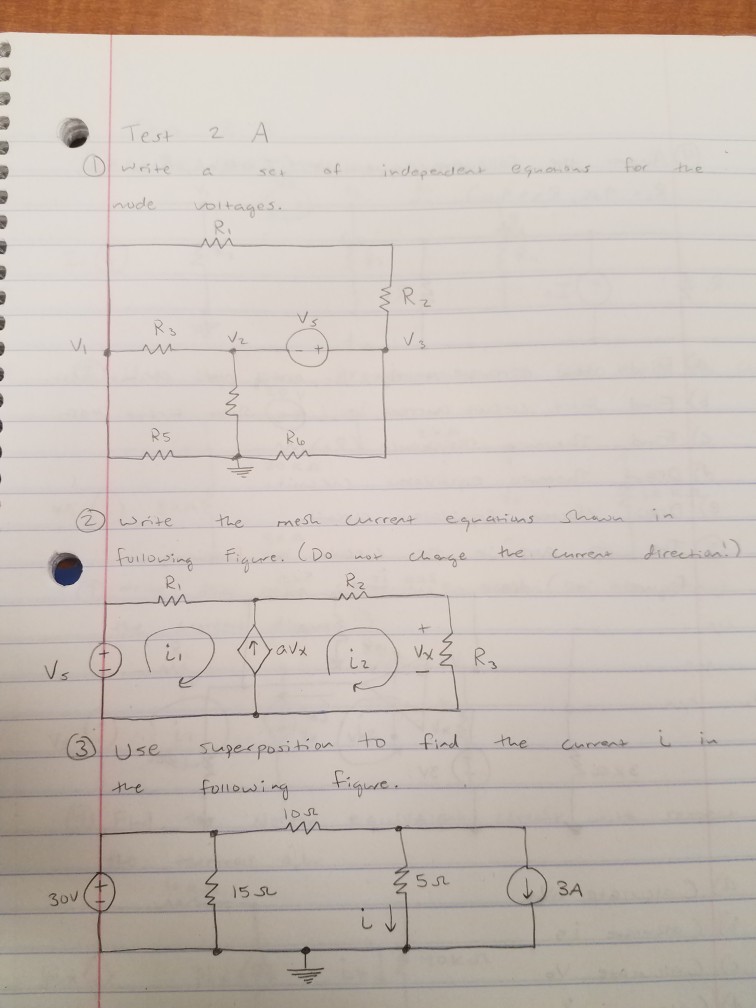 Test 2 A
① Write a set of independent equations for the
node voltages.
R₁
R₂
R₃
V₂
Vs
V₁
V₃
- +
R5
R6
② Write the mesh current equations shown in
following Figure. (Do not change the current direction!)
R₁
R₂
+
Vs
i₁
aVx
i₂
Vx
R₃
-
③ Use superposition to find the current i in
the following figure.
10Ω
30V
15Ω
5Ω
3A
i